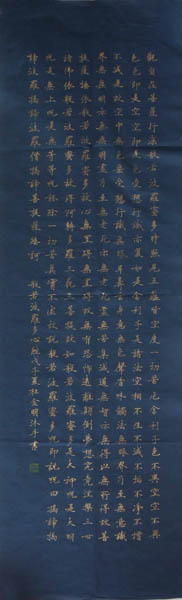 觀自在菩薩行深般若波羅蜜多時照見五蘊皆空度一切苦厄舍利子色不異空空不異
色色即是空空即是色受想行識亦復如是舍利子是諸法空相不生不滅不垢不淨不增
不減是故空中無色無受想行識無眼耳鼻舌身意無色聲香味觸法無眼界乃至無意識
界無無明亦無無明盡乃至無老死亦無老死盡無苦集滅道無智亦無得以無所得故菩
提薩埵依般若波羅蜜多故心無罣礙無罣礙故無有恐怖遠離顛倒夢想究竟涅槃三世
諸佛依般若波羅蜜多故得阿耨多羅三藐三菩提故知般若波羅蜜多是大神咒是大明
咒是無上咒是無等等咒能除一切苦真實不虛故說般若波羅蜜多咒即說咒曰揭諦揭
諦波羅揭諦波羅僧揭諦菩提薩婆訶 般若波羅多心經戊子夏杜金明沐手書